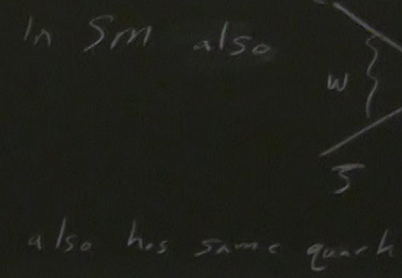 In SM also
W
s
also has same quark